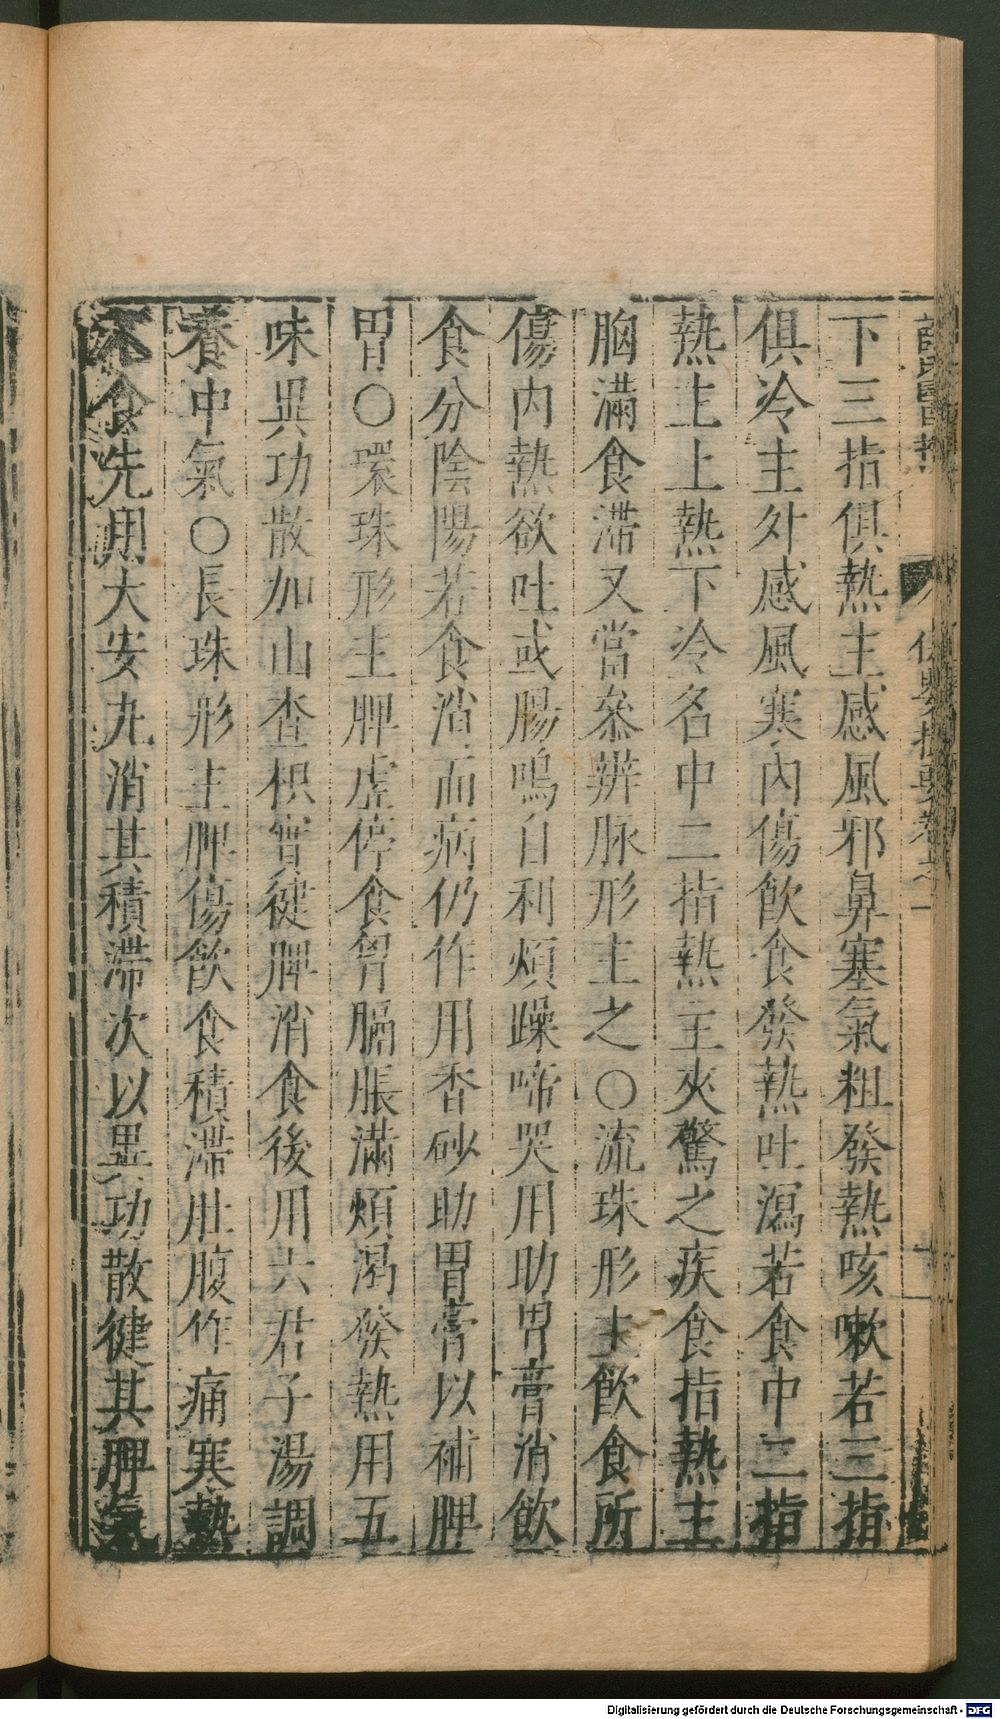 下三指俱熱主感風邪鼻塞氣粗發熱咳嗽若三指
俱冷主外感風寒內傷飲食發熱吐瀉若食中二指
熱主上熱下冷名中二指熱主夾驚之疾食指熱主
胸滿食滯又當叅辨脉形主之〇流珠形主飲食所
傷内熱欲吐或腸鳴自利煩躁啼哭用助胃膏消飲
食分陰陽若食消而病仍作用香砂助胃膏以補脾
胃〇環珠形主脾虛停食胷膈脹滿煩渴發熱用五
味異功散加山查枳實健脾消食後用六君子湯調
養中氣〇長珠形主脾傷飲食積滯肚腹作痛寒熱
不食先用大安丸消其積滯次以異功散健其脾氣
薛氏醫按
保嬰撮要卷之一
Digitalisierung gefördert durch die Deutsche Forschungsgemeinschaft - DFG